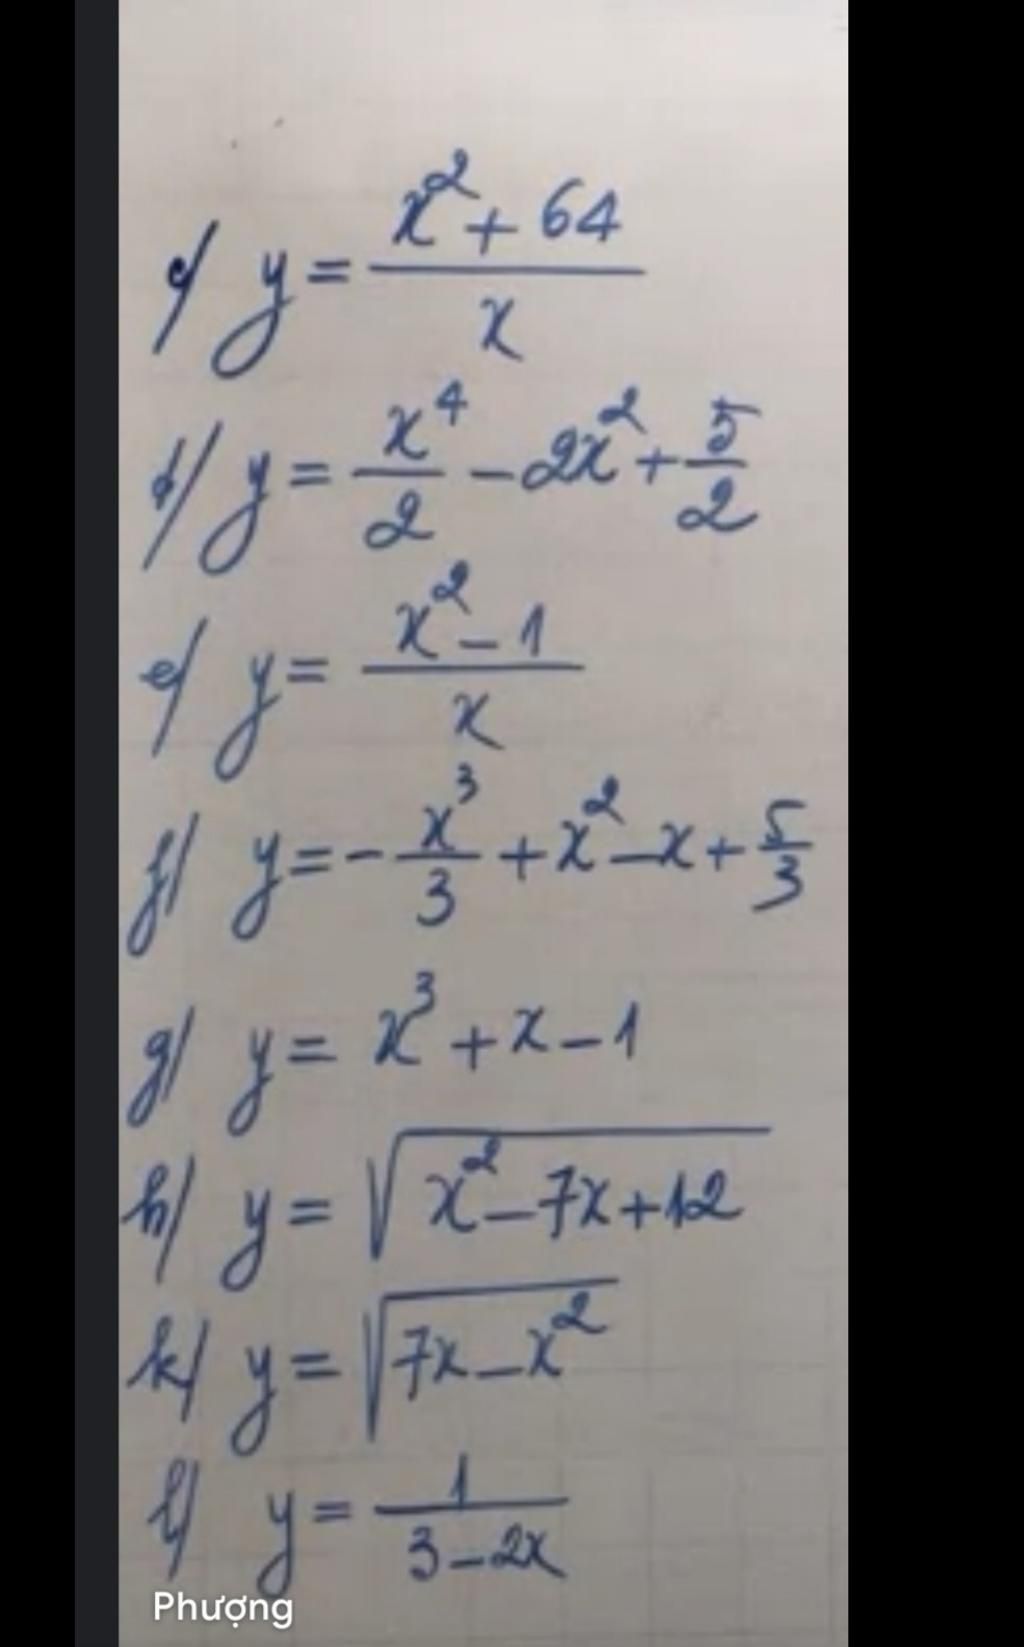 c/ y = (x² + 64)/x
d/ y = x⁴/2 - 2x² + 5/2
e/ y = (x² - 1)/x
f/ y = - x³/3 + x² - x + 5/3
g/ y = x³ + x - 1
h/ y = √(x² - 7x + 12)
k/ y = √(7x - x²)
l/ y = 1/(3 - 2x)
Phượng